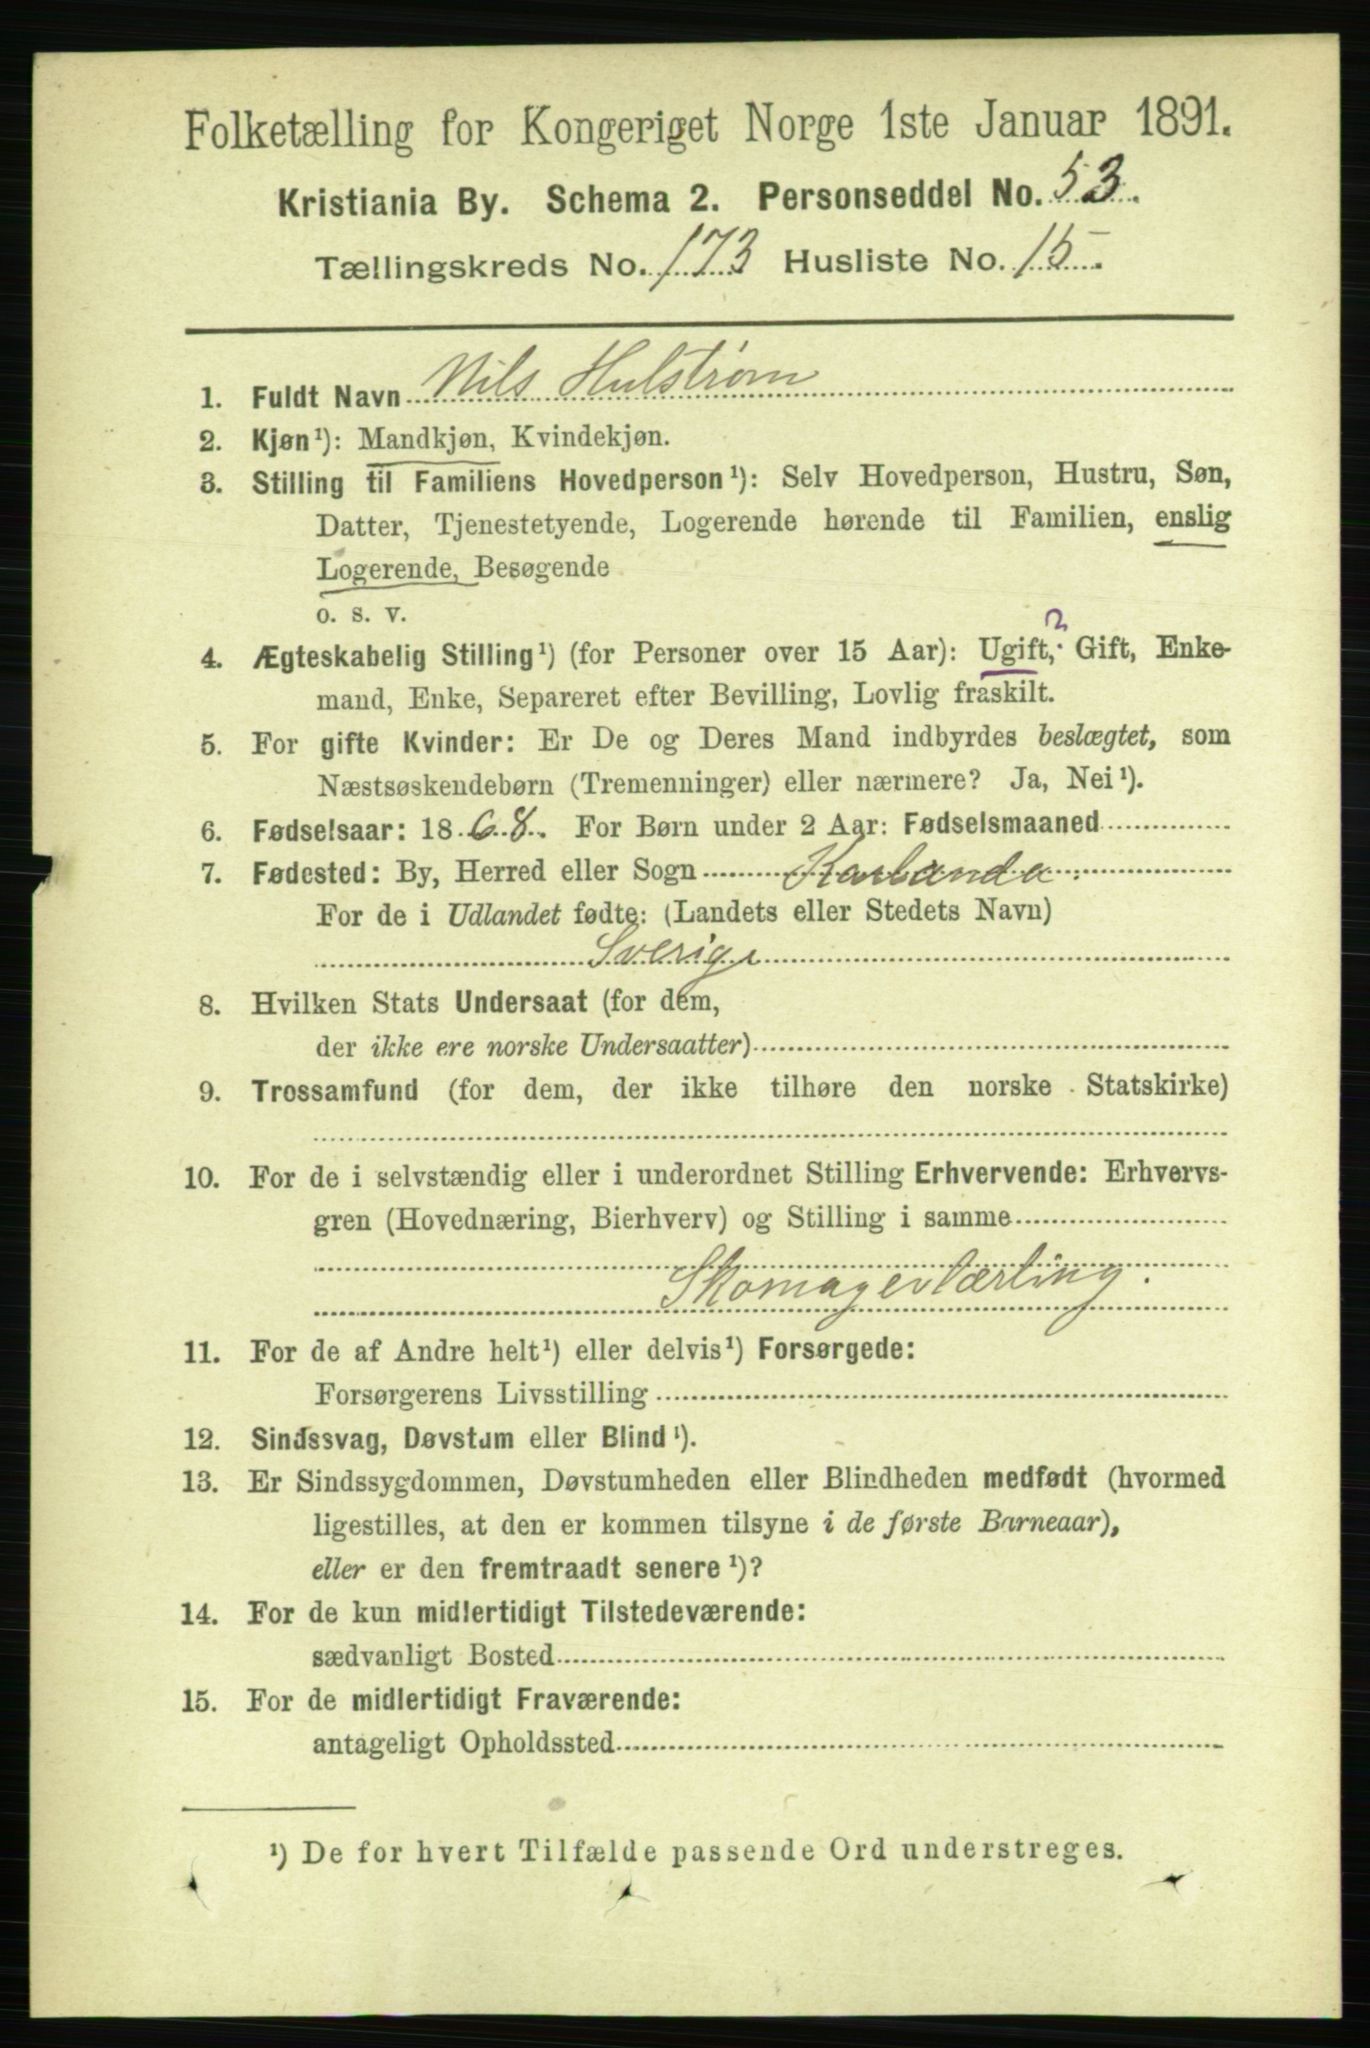 Folketælling for Kongeriget Norge 1ste Januar 1891.
Kristiania By. Schema 2. Personseddel No. 53.
Tællingskreds No. 173 Husliste No. 15.
1. Fuldt Navn Nils Hulstrøm
2. Kjøn¹): Mandkjøn, Kvindekjøn.
3. Stilling til Familiens Hovedperson¹): Selv Hovedperson, Hustru, Søn,
Datter, Tjenestetyende, Logerende hørende til Familien, enslig
Logerende, Besøgende
o. s. v.
4. Ægteskabelig Stilling¹) (for Personer over 15 Aar): Ugift,? Gift, Enke-
mand, Enke, Separeret efter Bevilling, Lovlig fraskilt.
5. For gifte Kvinder: Er De og Deres Mand indbyrdes beslægtet, som
Næstsøskendebørn (Tremenninger) eller nærmere? Ja, Nei¹).
6. Fødselsaar: 1868. For Børn under 2 Aar: Fødselsmaaned
7. Fødested: By, Herred eller Sogn Karlanda.
For de i Udlandet fødte: (Landets eller Stedets Navn)
Sverige
8. Hvilken Stats Undersaat (for dem,
der ikke ere norske Undersaatter)
9. Trossamfund (for dem, der ikke tilhøre den norske Statskirke)
10. For de i selvstændig eller i underordnet Stilling Erhvervende: Erhvervs-
gren (Hovednæring, Bierhverv) og Stilling i samme
Skomagerlærling.
11. For de af Andre helt¹) eller delvis¹) Forsørgede:
Forsørgerens Livsstilling
12. Sindssvag, Døvstum eller Blind¹).
13. Er Sindssygdommen, Døvstumheden eller Blindheden medfødt (hvormed
ligestilles, at den er kommen tilsyne i de første Barneaar),
eller er den fremtraadt senere¹)?
14. For de kun midlertidigt Tilstedeværende:
sædvanligt Bosted
15. For de midlertidigt Fraværende:
antageligt Opholdssted
¹) De for hvert Tilfælde passende Ord understreges.